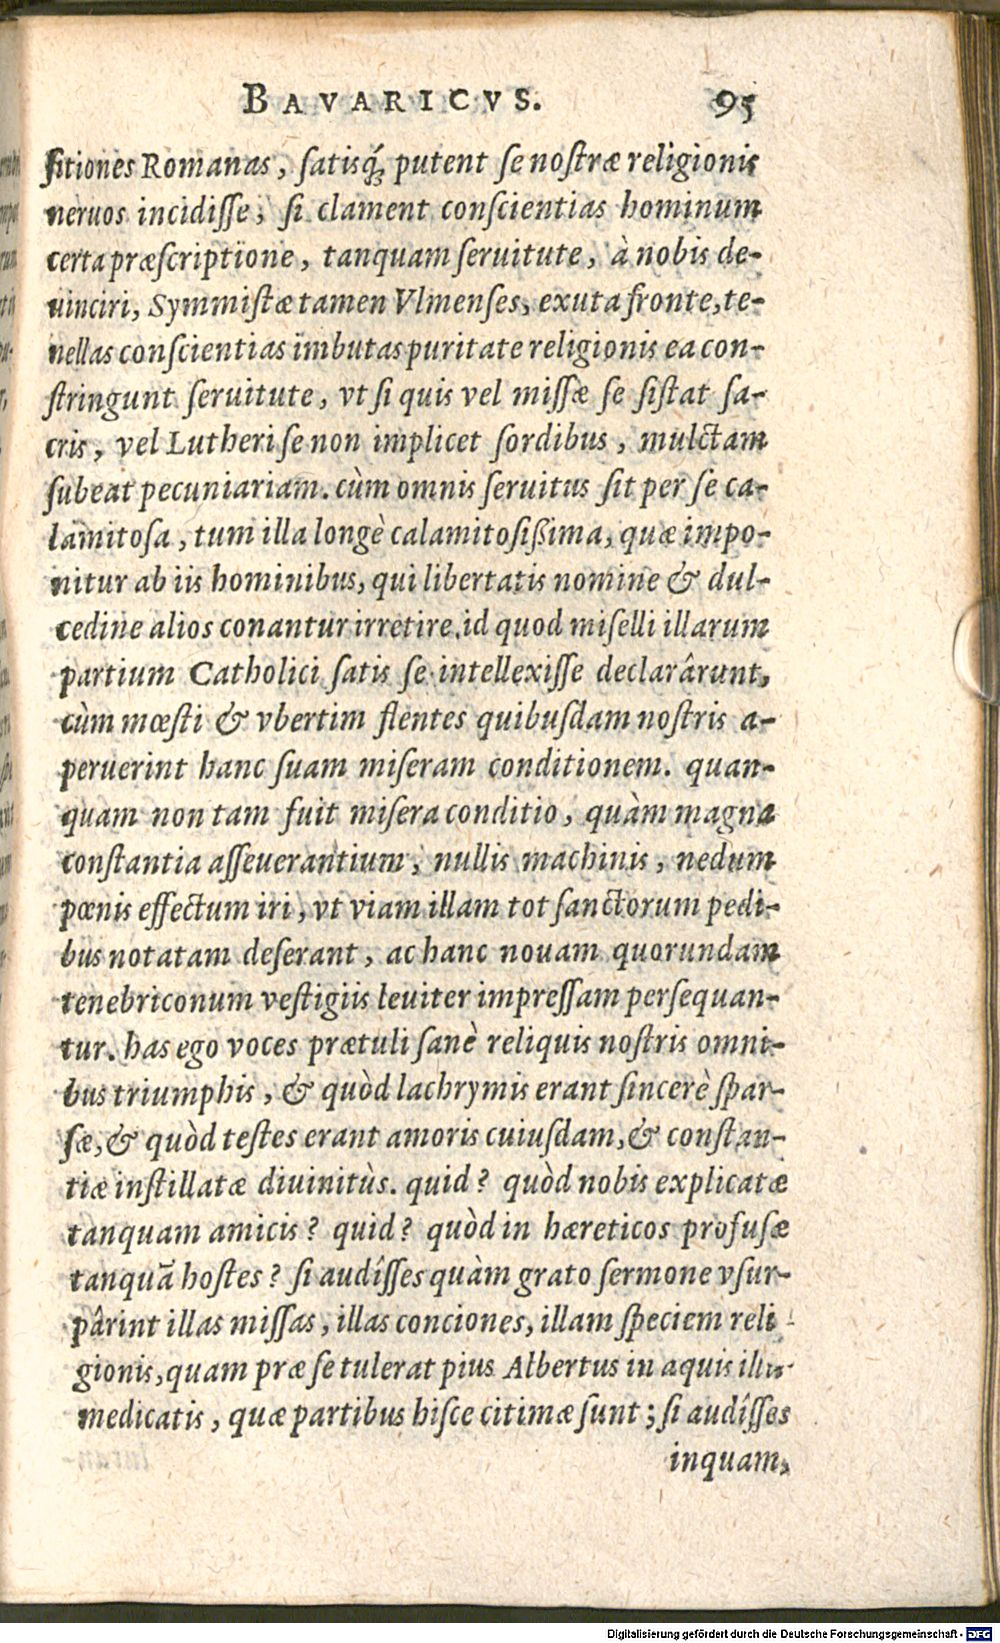 BAVARICVS. 95
ſitiones Romanas, ſatisq́; putent ſe noſtræ religionis
neruos incidiſſe, ſi clament conſcientias hominum
certa præſcriptione, tanquam ſeruitute, à nobis de-
uinciri, Symmiſtæ tamen Vlmenſes, exuta fronte, te-
nellas conſcientias imbutas puritate religionis ea con-
ſtringunt ſeruitute, vt ſi quis vel miſſæ ſe ſiſtat ſa-
cris, vel Lutheri ſe non implicet ſordibus, mulctam
ſubeat pecuniariam. cùm omnis ſeruitus ſit per ſe ca-
lamitoſa, tum illa longè calamitoſißima, quæ impo-
nitur ab iis hominibus, qui libertatis nomine & dul-
cedine alios conantur irretire. id quod miſelli illarum
partium Catholici ſatis ſe intellexiſſe declarârunt,
cùm mœſti & vbertim flentes quibuſdam noſtris a-
peruerint hanc ſuam miſeram conditionem. quan-
quam non tam fuit miſera conditio, quàm magna
conſtantia aſſeuerantium, nullis machinis, nedum
pœnis effectum iri, vt viam illam tot ſanctorum pedi-
bus notatam deſerant, ac hanc nouam quorundam
tenebriconum veſtigiis leuiter impreſſam perſequan-
tur. has ego voces prætuli ſanè reliquis noſtris omni-
bus triumphis, & quòd lachrymis erant ſincerè ſpar-
ſæ, & quòd teſtes erant amoris cuiuſdam, & conſtan-
tiæ inſtillatæ diuinitùs. quid? quòd nobis explicatæ
tanquam amicis? quid? quòd in hæreticos profuſæ
tanquã hoſtes? ſi audîſſes quàm grato ſermone vſur-
pârint illas miſſas, illas conciones, illam ſpeciem reli-
gionis, quam præ ſe tulerat pius Albertus in aquis illis
medicatis, quæ partibus hiſce citimæ ſunt; ſi audîſſes
inquam,
Digitalisierung gefördert durch die Deutsche Forschungsgemeinschaft - DFG